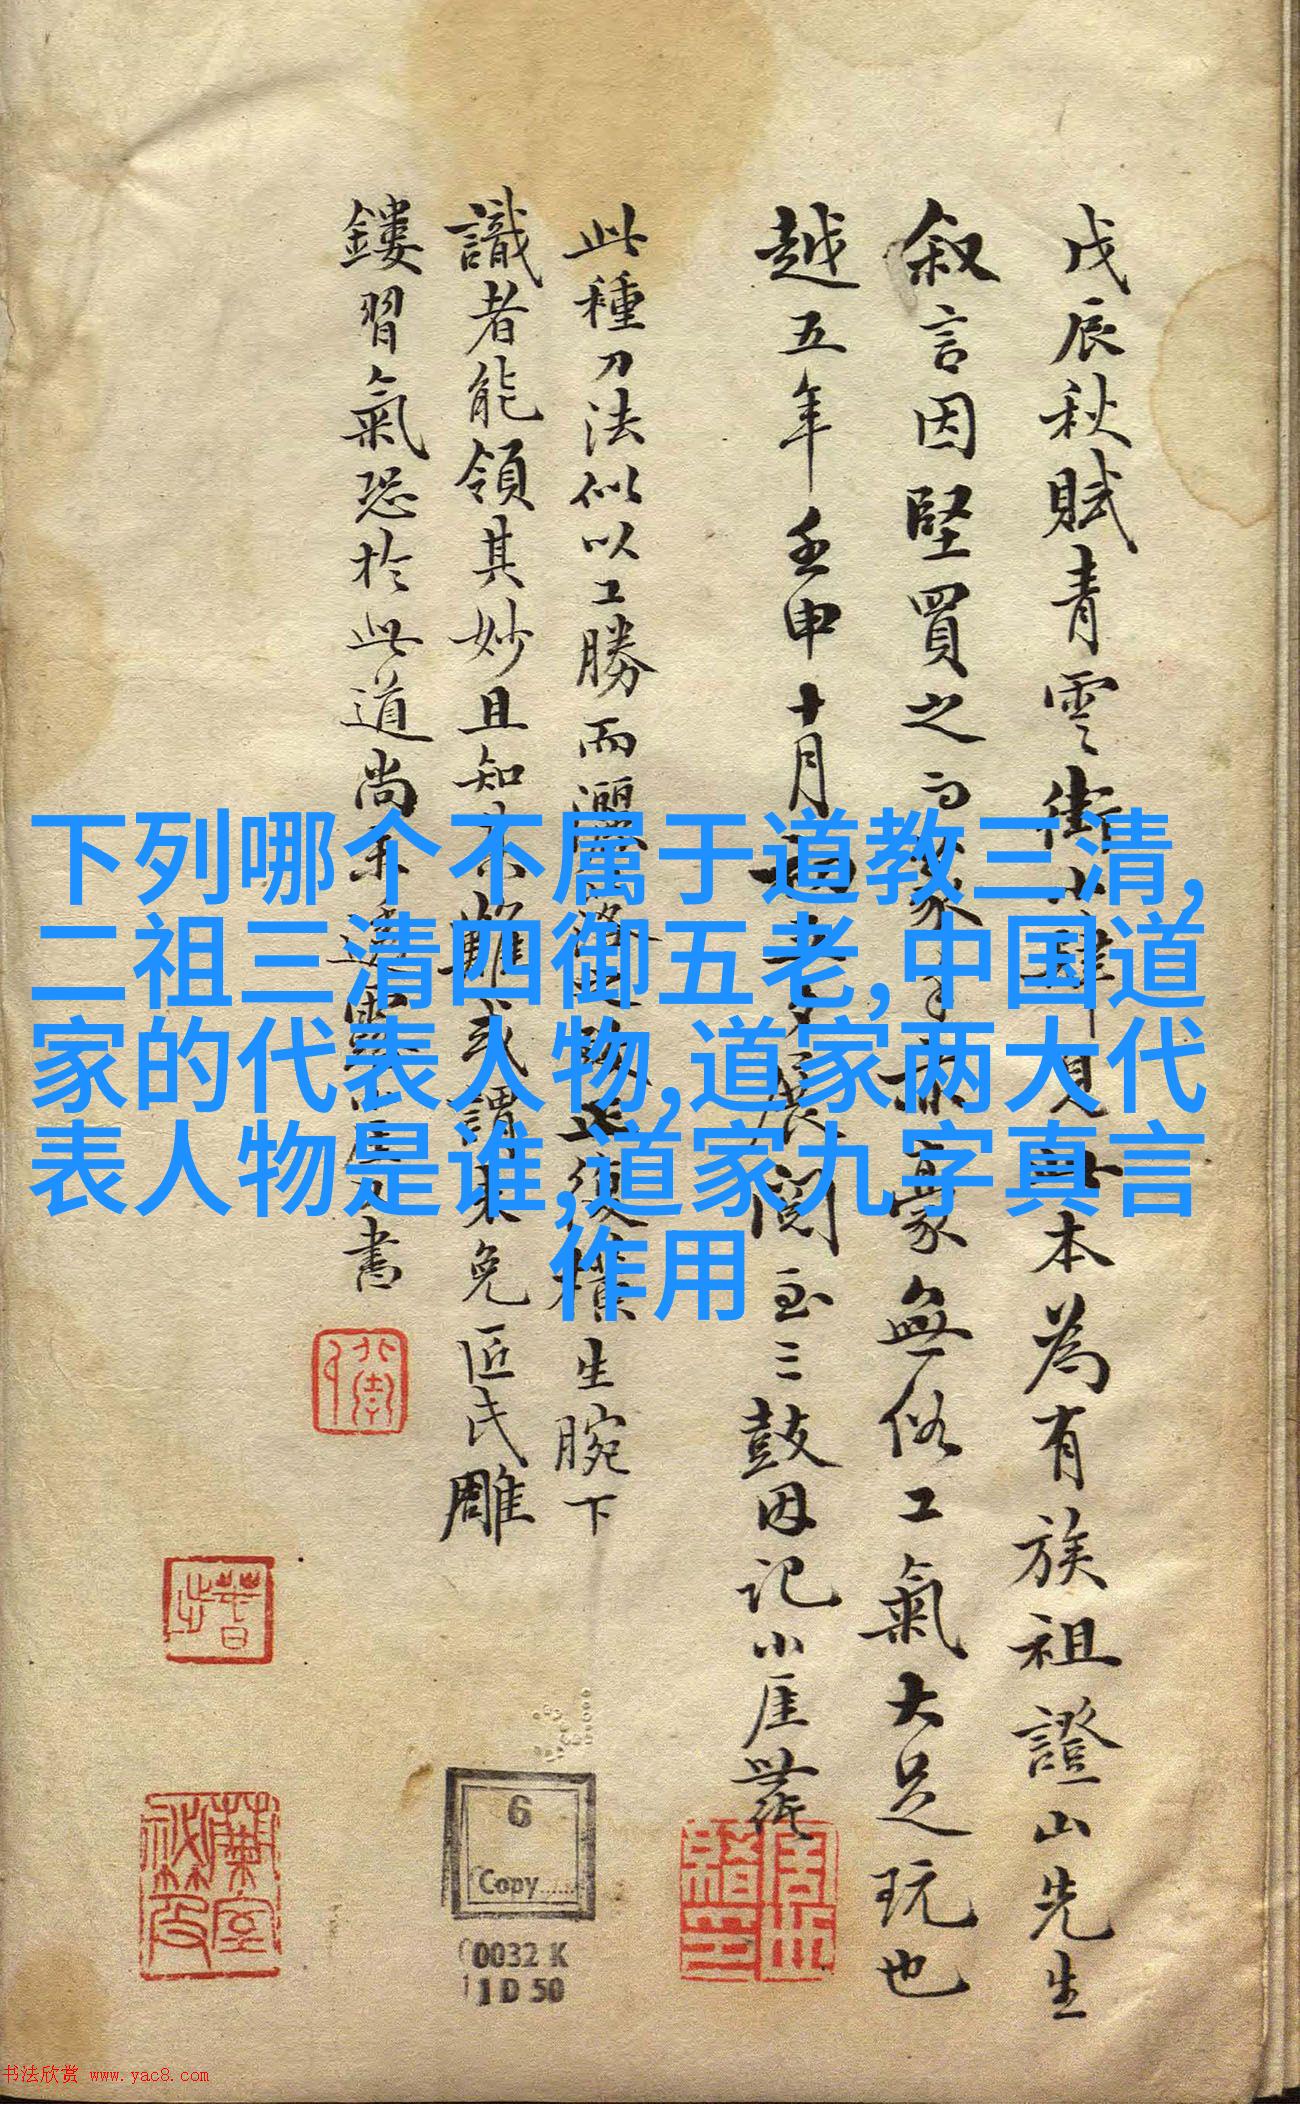 戊辰秋賦青雲街小肆見此本為有族祖證山先生
叙言因堅買之而家手亦豪無俗工氣大足玩也
越五年壬申十月閱至三鼓因記小厓
此種刀法似以工勝而灑落之致正復橫生腕下
識者能領其妙且知其難或謂未免匠氏雕
鏤習氣恐於此道尚未達書
下列哪个不属于道教三清,
二祖三清四御五老,中国道
家的代表人物,道家两大代
表人物是谁,道家九字真言
作用
6
Copy......
0032 K
1 D 50
书法欣赏 www.yac8.com